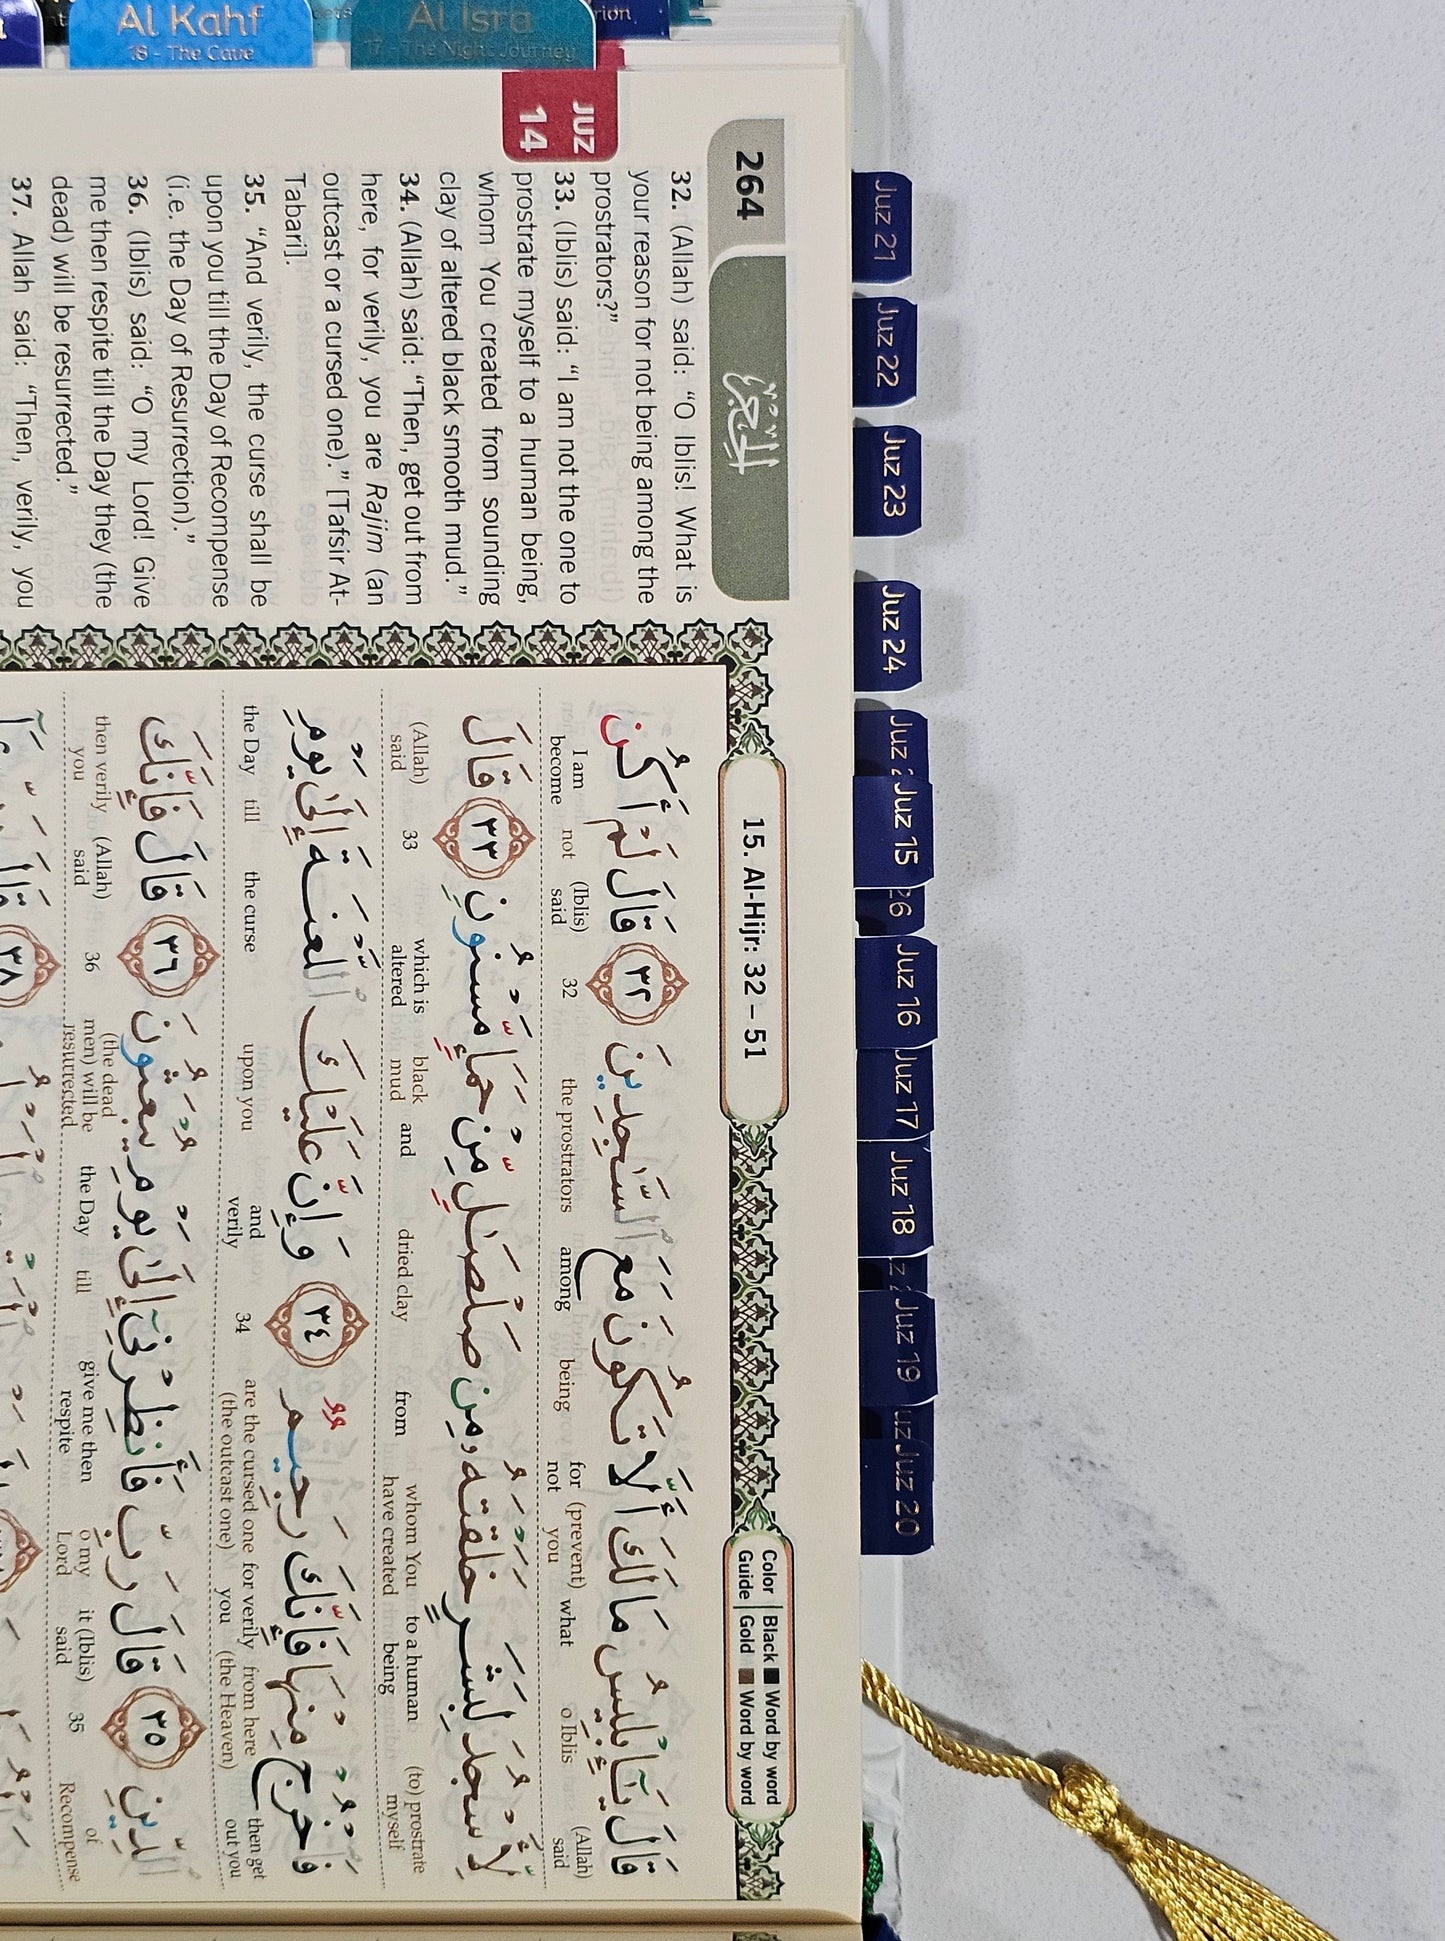 Al Kahf
18 - The Cave
Al Isra
17 - The Night Journey
JUZ
14
264
الحجر
15. Al-Hijr: 32 – 51
Color Guide
Black Word by word
Gold Word by word
32. (Allah) said: “O Iblis! What is
your reason for not being among the
prostrators?”
33. (Iblis) said: “I am not the one to
prostrate myself to a human being,
whom You created from sounding
clay of altered black smooth mud.”
34. (Allah) said: “Then, get out from
here, for verily, you are Rajim (an
outcast or a cursed one).” [Tafsir At-
Tabari].
35. “And verily, the curse shall be
upon you till the Day of Recompense
(i.e. the Day of Resurrection).”
36. (Iblis) said: “O my Lord! Give
me then respite till the Day they (the
dead) will be resurrected.”
37. Allah said: “Then, verily, you
قَالَ يَـٰٓإِبۡلِيسُ مَا لَكَ أَلَّا تَكُونَ مَعَ ٱلسَّـٰجِدِينَ ٣٢ قَالَ لَمۡ أَكُن
I am become not (Iblis) said 32 the prostrators among being for not (prevent) you what o Iblis (Allah) said
لِّأَسۡجُدَ لِبَشَرٍ خَلَقۡتَهُۥ مِن صَلۡصَـٰلٍ مِّنۡ حَمَإٍ مَّسۡنُونٍ ٣٣ قَالَ
(Allah) said 33 which is altered black mud and dried clay from whom You have created to a human being (to) prostrate myself
فَٱخۡرُجۡ مِنۡهَا فَإِنَّكَ رَجِيمٌ ٣٤ وَإِنَّ عَلَيۡكَ ٱللَّعۡنَةَ إِلَىٰ يَوۡمِ
the Day till the curse upon you and verily 34 are the cursed one (the outcast one) for verily you from here (the Heaven) then get out you
ٱلدِّينِ ٣٥ قَالَ رَبِّ فَأَنظِرۡنِيٓ إِلَىٰ يَوۡمِ يُبۡعَثُونَ ٣٦ قَالَ فَإِنَّكَ
then verily you (Allah) said 36 (the dead men) will be resurrected the Day till give me then respite o my Lord it (Iblis) said 35 of Recompense
٣٨
Juz 21
Juz 22
Juz 23
Juz 24
Juz
Juz 15
26
Juz 16
Juz 17
Juz 18
Juz 19
Juz 20